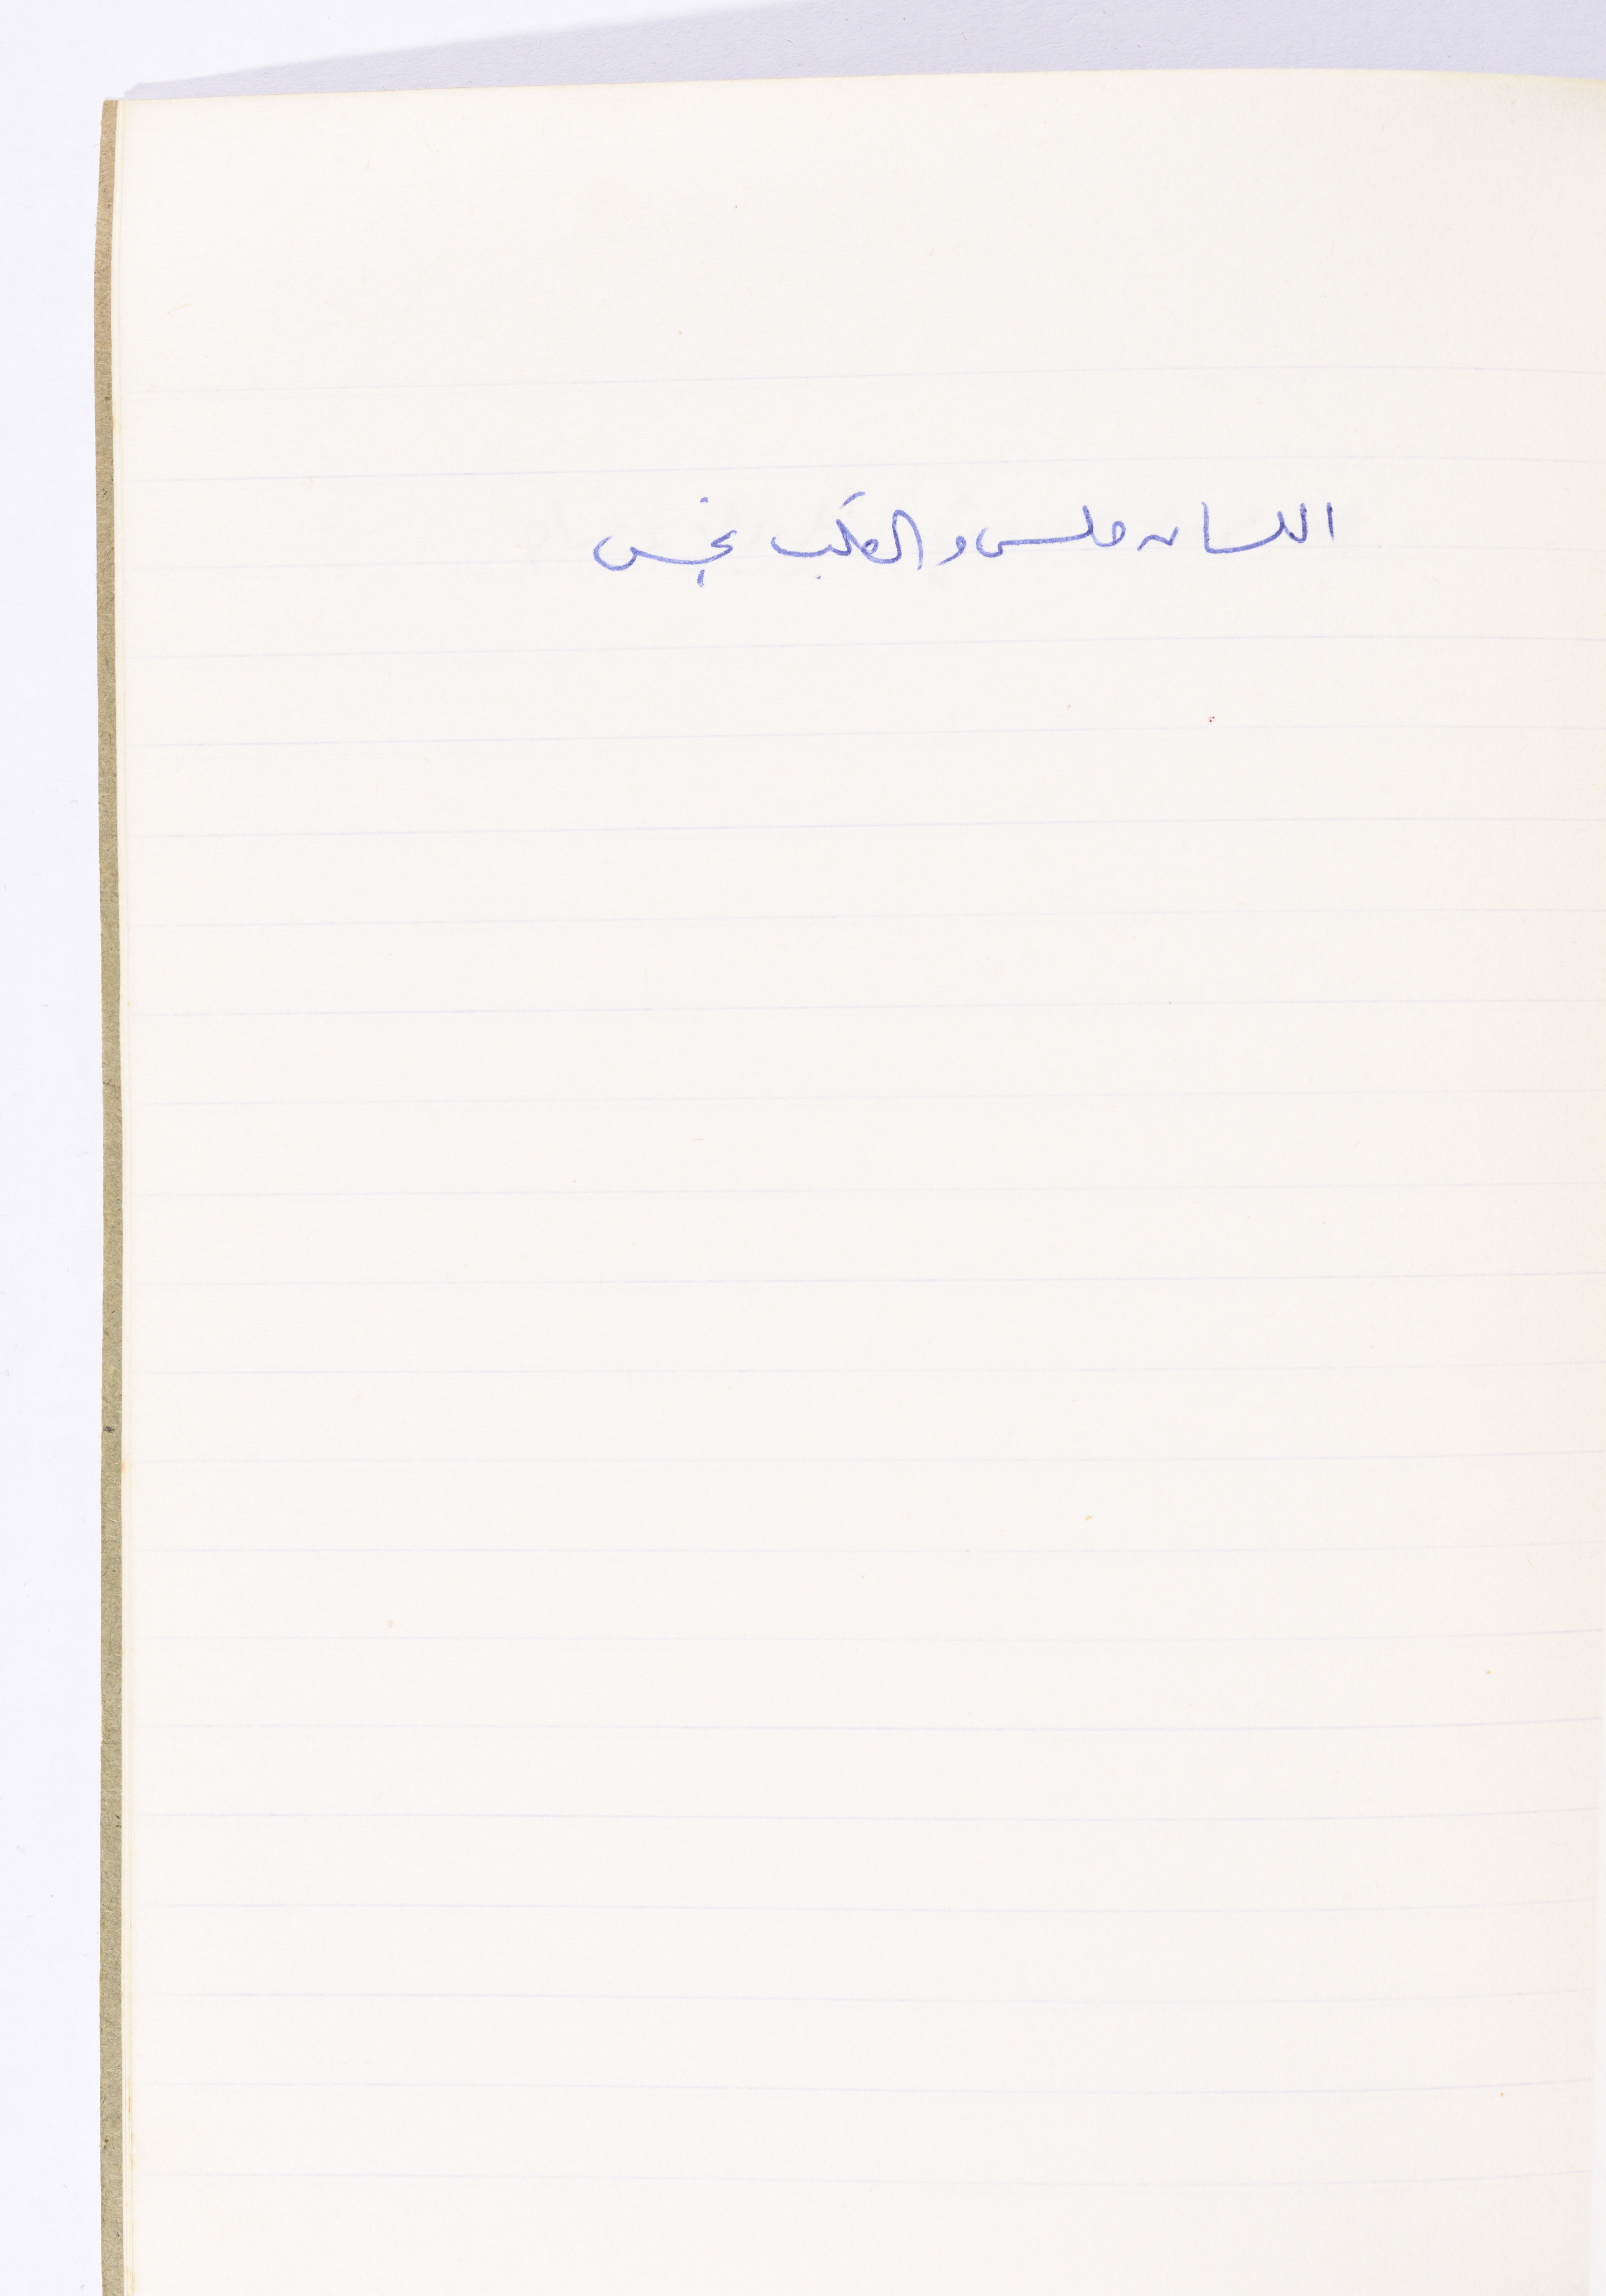 اللسان ملس و الگلب نجس